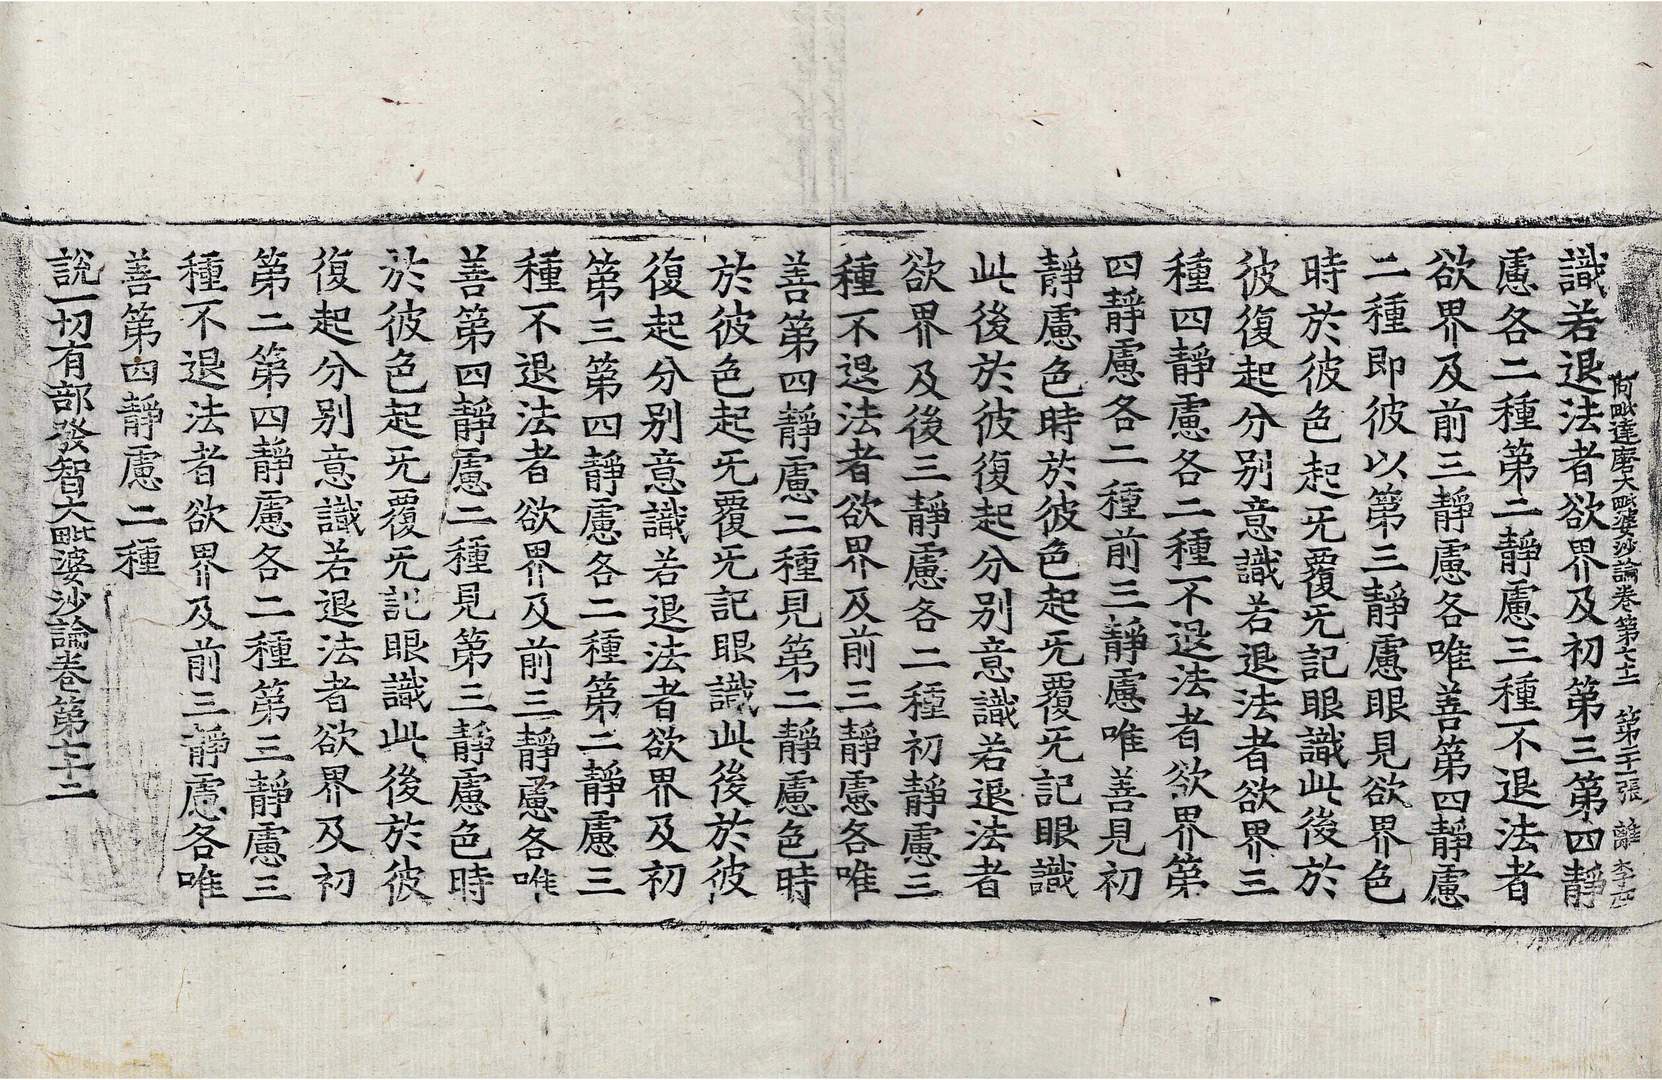 阿毗達磨大毗婆沙論卷第七十二 第二十一張 離
識若退法者欲界及初第三第四靜
慮各二種第二靜慮三種不退法者
欲界及前三靜慮各唯善第四靜慮
二種即彼以第三靜慮眼見欲界色
時於彼色起无覆无記眼識此後於
彼復起分别意識若退法者欲界三
種四靜慮各二種不退法者欲界第
四靜慮各二種前三靜慮唯善見初
靜慮色時於彼色起无覆无記眼識
此後於彼復起分别意識若退法者
欲界及後三靜慮各二種初靜慮三
種不退法者欲界及前三靜慮各唯
善第四靜慮二種見第二靜慮色時
於彼色起无覆无記眼識此後於彼
復起分别意識若退法者欲界及初
第三第四靜慮各二種第二靜慮三
種不退法者欲界及前三靜慮各唯
善第四靜慮二種見第三靜慮色時
於彼色起无覆无記眼識此後於彼
復起分别意識若退法者欲界及初
第二第四靜慮各二種第三靜慮三
種不退法者欲界及前三靜慮各唯
善第四靜慮二種
說一切有部發智大毗婆沙論卷第七十二